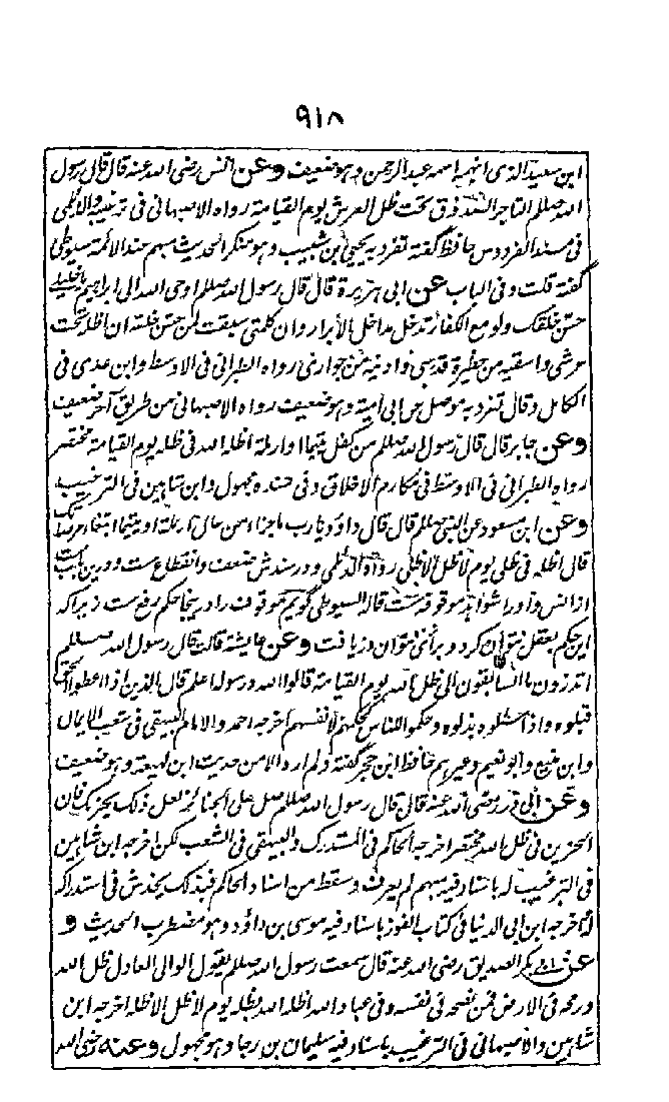 ۹۱۸
ابن سعید الذی انهم اسمه عبد الرحمن وهو ضعیف وعن انس رضی الله عنه قال قال رسول
الله صللم التاجر الصدوق تحت ظل العرش یوم القیامة رواه الاصبهانی فی ترغیبه والدیلمی
فی مسند الفردوس حافظ گفته تفرد به یحیی بن شبیب وهو منکر الحدیث متهم عند الائمة سیوطی
گفته قلت وفی الباب عن ابی هریرة قال قال رسول الله صللم اوحی الله الی ابراهیم یا خلیلی
حسن خلقک ولو مع الکفار تدخل مداخل الأبرار وان کلمتی سبقت لمن حسن خلقه ان اظله تحت
عرشی واسقیه من حظیرة قدسی وادنیه من جواری رواه الطبرانی فی الاوسط وابن عدی فی
الکامل وقال تفرد به موصل بن ابی امیة وهو ضعیف رواه الاصبهانی من طریق آخر ضعیف
وعن جابر قال قال رسول الله صللم من کفل یتیما او ارملة اظله الله فی ظله یوم القیامة مختصر
رواه الطبرانی فی الاوسط فی مکارم الاخلاق وفی سنده مجهول وابن شاهین فی الترغیب
وعن ابن مسعود عن النبی صللم قال قال داؤد یا رب ما جزاء من عال ارملة او یتیما ابتغاء مرضاتک
قال اظله فی ظلی یوم لا ظل الا ظلی رواه الدیلمی ودر سندش ضعف وانقطاع ست ودرین باب ست
از انس واورا شواهد موقوفه ست قاله السیوطی گویم موقوف را درینجا حکم رفع ست زیرا که
این حکم بعقل نتوان کرد و برأی نتوان دریافت وعن عایشة قالت قال رسول الله صللم
اتدرون ما السابقون الی ظل الله یوم القیامة قالوا الله ورسوله اعلم قال الذین اذا اعطوا الحق
قبلوه واذا سئلوه بذلوه وحکموا للناس کحکمهم لانفسهم اخرجه احمد والامام البیهقی فی شعب الایمان
وابن منیع وابو نعیم وغیرهم حافظ ابن حجر گفته ولم اره الا من حدیث ابن لهیعة وهو ضعیف
وعن ابی ذر رضی الله عنه قال قال رسول الله صللم صل علی الجنائز لعل ذلک یحزنک فان
الحزین فی ظل الله مختصر اخرجه الحاکم فی المستدرک والبیهقی فی الشعب لکن اخرجه ابن شاهین
فی الترغیب له باسناد فیه مبهم لم یعرف وسقط من اسناد الحاکم فبذلک یخدش فی استدراکه
اخرجه ابن ابی الدنیا فی کتاب القبور باسناد فیه موسی بن داؤد وهو مضطرب الحدیث و
عن ابی بکر الصدیق رضی الله عنه قال سمعت رسول الله صللم یقول الوالی العادل ظل الله
ورمحه فی الارض فمن نصحه فی نفسه وفی عباد الله اظله الله بظله یوم لا ظل الا ظله اخرجه ابن
شاهین والاصبهانی فی الترغیب باسناد فیه سلیمان بن رجا وهو مجهول وعنه رضی الله